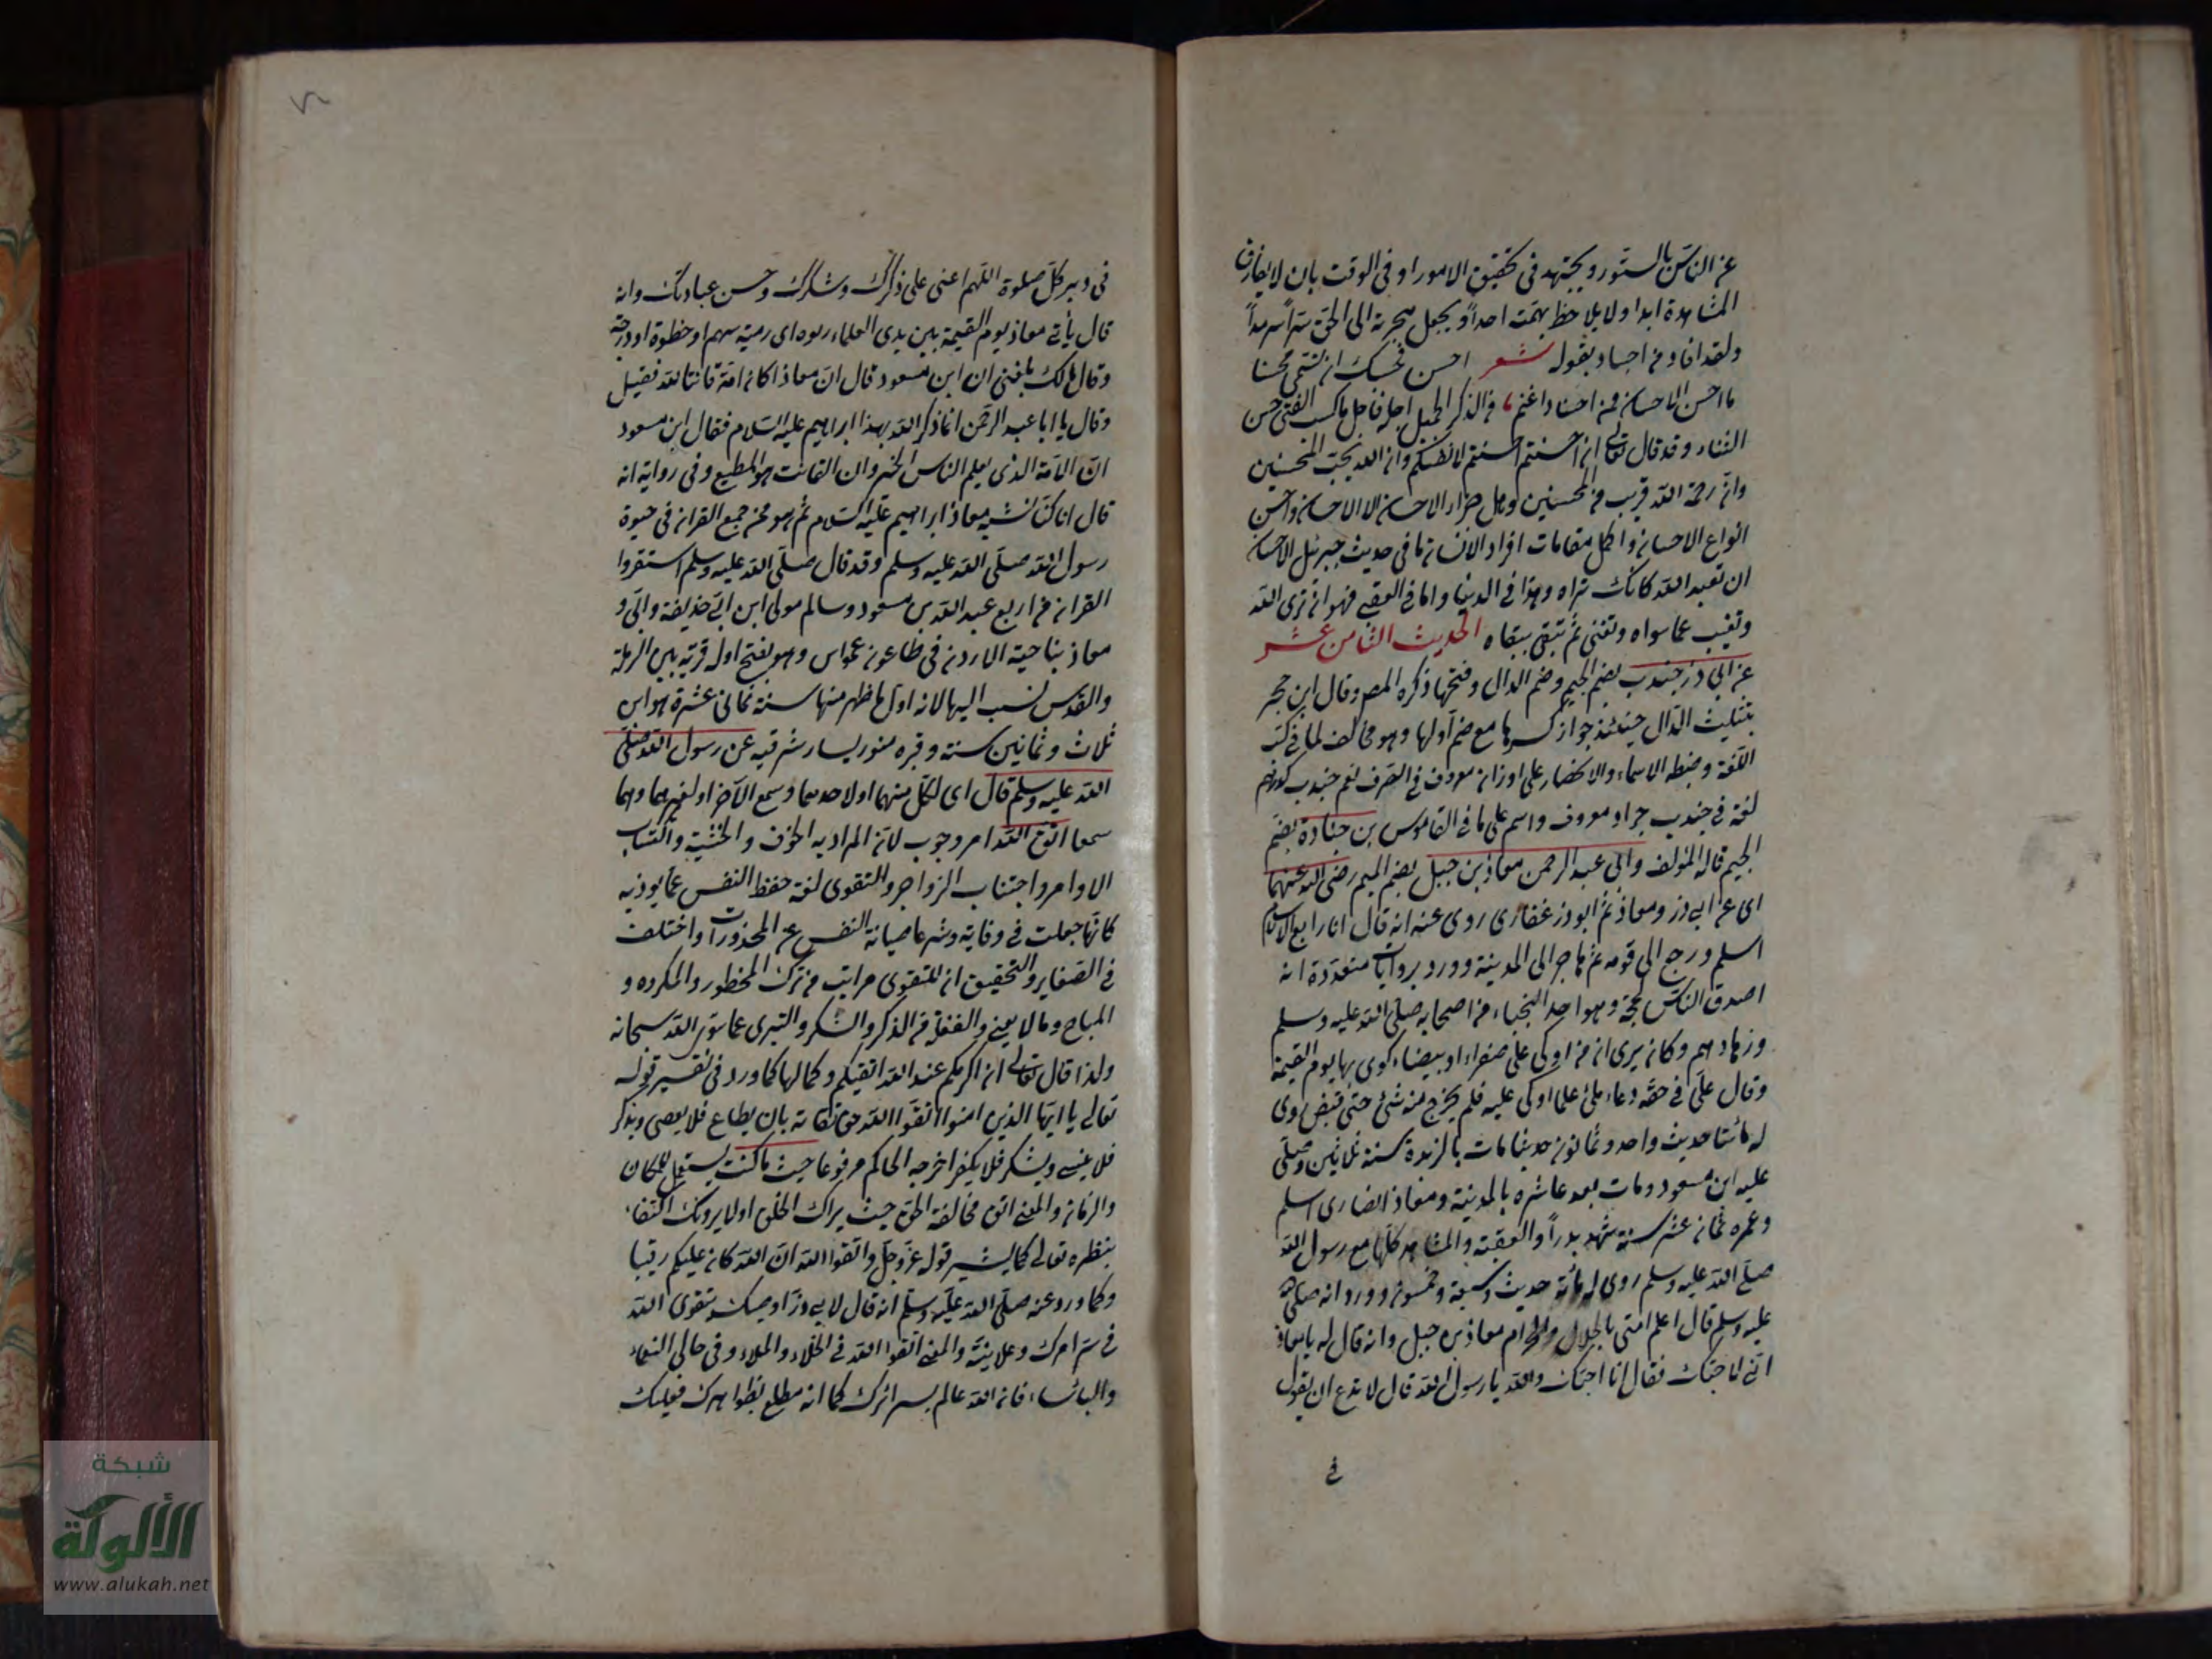 عن الناس بالستور ويجتهد في تحقيق الامور او في الوقت بان لا يفارق
المشاهدة ابدا ولا يلاحظ بهمته احداً ويجعل هجرته الى الحق سرمداً
ولقد افاد من اجاد بقوله شعر احسن
ما احسن الاحسان من فان الذكر الجميل اجل ما كسب الفتى حسن
الثناء وقد قال تعالى ان احسنتم احسنتم لانفسكم وان الله يحب المحسنين
وان رحمة الله قريب من المحسنين وهل جزاء الاحسان الا الاحسان واحسن
انواع الاحسان واكمل مقامات افراد الانسان ما في حديث جبرئيل الاحسان
ان تعبد الله كانك تراه وهذا في الدنيا واما في العقبى فهو ان ترى الله
وتغيب عما سواه وتفنى ثم تبقى ببقاه الحديث الثامن عشر
عن ابي ذر جندب بضم الجيم وضم الدال وفتحها ذكره المص وقال ابن حجر
بتثليث الدال حينئذ جواز كسرها مع ضم اولها وهو مخالف لما في كتب
اللغة وضبط الاسماء والانحصار على اوزان معروف في الصرف نعم جندب كدرهم
لغة في جندب جراد معروف واسم على ما في القاموس بن جنادة بضم
الجيم قاله المؤلف وابي عبد الرحمن معاذ بن جبل بضم الميم رضي الله عنهما
اى عن ابي ذر ومعاذ ثم ابو ذر غفارى روى عنه انه قال انا رابع الاسلام
اسلم ورجع الى قومه ثم هاجر الى المدينة وورد بروايات متعددة انه
اصدق الناس لهجة وهو احد النجباء من اصحابه صلى الله عليه وسلم
وزهادهم وكان يرى ان من اوكى على صفراء او بيضاء كوى بها يوم القيمة
وقال علي في حقه وعاء ملئ علما اوكى عليه فلم يخرج منه شئ حتى قبض روى
له مائتا حديث واحد وثمانون حديثا مات بالربذة سنة ثلاثين وصلى
عليه ابن مسعود ومات بعد عاشره بالمدينة ومعاذ انصارى اسلم
وعمره ثمان عشر سنة شهد بدراً والعقبة والمشاهد كلها مع رسول الله
صلى الله عليه وسلم روى له مائة حديث وسبعة وخمسون وورد انه صلى الله
عليه وسلم قال اعلم امتى بالحلال والحرام معاذ بن جبل وانه قال له يا معاذ
انى لاحبك فقال انا احبك والله يا رسول الله قال لا تدع ان يقول
في
في دبر كل صلوة اللهم اعنى على ذكرك وشكرك وحسن عبادتك وانه
قال يأتى معاذ يوم القيمة بين يدى العلماء ربوه اى رمية سهم او خطوة او درجة
وقال مالك بلغنى ان ابن مسعود قال ان معاذا كان امة قانتا لله فقيل
وقال يا ابا عبد الرحمن انما ذكر الله بهذا ابراهيم عليه السلام فقال ابن مسعود
ان الامة الذى يعلم الناس الخير وان القانت هو المطيع وفى رواية انه
قال انا كنا نشبه معاذ ابراهيم عليه السلام ثم هو ممن جمع القران في حيوة
رسول الله صلى الله عليه وسلم وقد قال صلى الله عليه وسلم استقروا
القران من اربع عبد الله بن مسعود وسالم مولى ابن ابى حذيفة وابى و
معاذ بناحية الاردن في طاعون عمواس وهو بفتح اوله قرية بين الرملة
والقدس نسب اليها لانه اول ما ظهر منها سنة ثمانى عشرة هو ابن
ثلاث وثمانين سنة وقبره منور يسار شرقيه عن رسول الله صلى
الله عليه وسلم قال اى لكل منهما او لاحدهما وسمع الآخر او لغيرهما وهما
سمعا اتق الله امر وجوب لان المراد به الخوف والخشية واكتساب
الاوامر واجتناب الزواجر والتقوى لغة حفظ النفس عما يوذيه
كانها جعلت في وقاية وشرعا صيانة النفس عن المحذورات واختلف
في الصغاير والتحقيق ان للتقوى مراتب من ترك المحظور والمكروه و
المباح وما لا يعنى والغفلة من الذكر والشكر والتبرى عما سوى الله سبحانه
ولذا قال تعالى ان اكرمكم عند الله اتقيكم وكمالها كما ورد في تفسير قوله
تعالى يا ايها الذين امنوا اتقوا الله حق تقاته بان يطاع فلا يعصى ويذكر
فلا ينسى ويشكر فلا يكفر اخرجه الحاكم مرفوعا حيث ما كنت يستعمل للمكان
والزمان والمعنى اتق مخالفة الحق حيث يراك الخلق او لا يرونك اكتفاء
بنظره تعالى كما يشير قوله عز وجل واتقوا الله ان الله كان عليكم رقيبا
وكما ورد عنه صلى الله عليه وسلم انه قال لابي ذر اوصيك بتقوى الله
في سر امرك وعلانيته والمعنى اتقوا الله في الخلاء والملاء وفى حالى النعماء
والبأساء فان الله عالم بسرائرك كما انه مطلع بظواهرك فعليك
شبكة
الألوكة
www.alukah.net